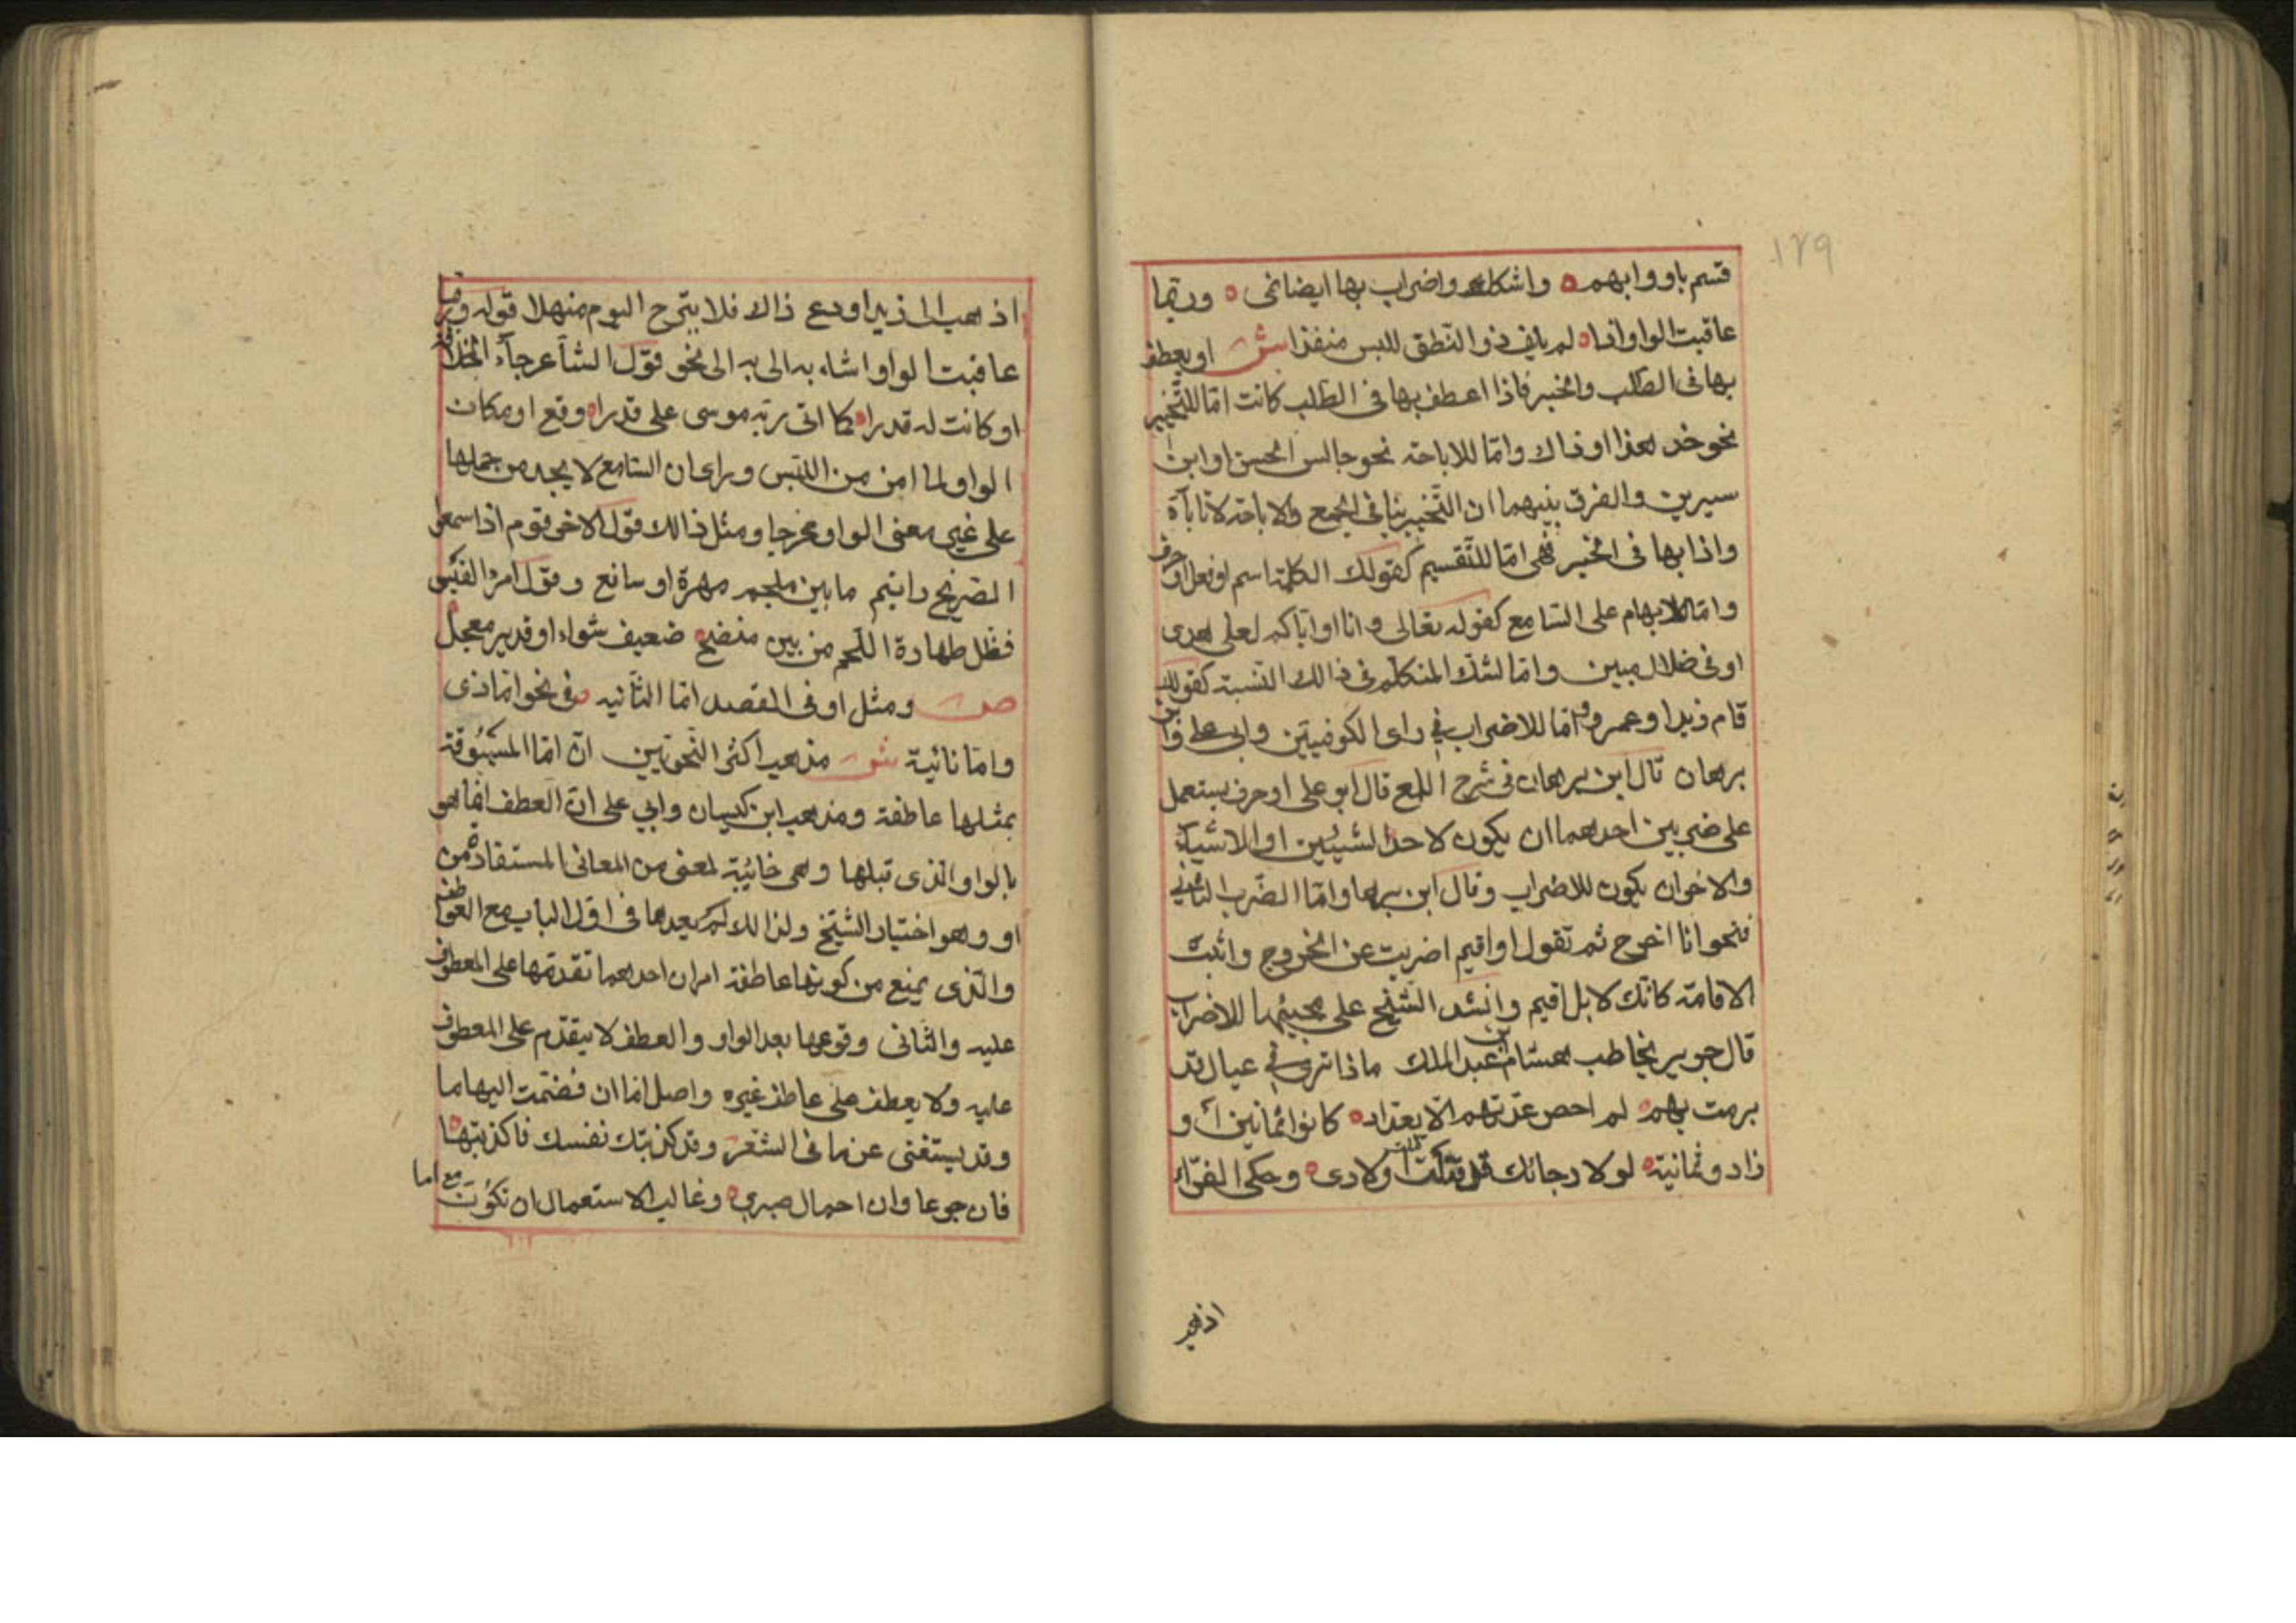 ١٢٩
قسم باو وابهم واشكك واضراب بها ايضا نمى وربما
عاقبت الواو اذا لم يلف ذو النطق للبس منفذا ش او يعطف
بها فى الطلب والخبر فاذا اعطف بها فى الطلب كانت امّا للتّخيير
نحو خذ هذا او ذاك وامّا للاباحة نحو جالس الحسن او ابن
سيرين والفرق بينهما ان التّخيير ينافى الجمع والاباحة لا تاباه
واذا بها فى الخبر فهى امّا للتّقسيم كقولك الكلمة اسم او فعل او حرف
وامّا للابهام على السّامع كقوله تعالى وانا او اياكم لعلى هدى
او فى ضلال مبين وامّا لشكّ المتكلّم فى ذالك النّسبة كقولك
قام زيد او عمرو وامّا للاضراب فى راى الكوفيّين وابى على وابن
برهان قال ابن برهان فى شرح اللمع قال ابو على او حرف يستعمل
على ضربين احدهما ان يكون لاحد الشّيئين او الاشياء
والاخر ان يكون للاضراب وقال ابن برها وامّا الضّرب الثّانى
فنحو انا اخرج ثم تقول او اقيم اضربت عن الخروج واثبت
الاقامة كانّك لا بل اقيم وانشد الشّيخ على مجيئها للاضراب
قال جرير يخاطب هشام بن عبد الملك ماذا ترى فى عيال قد
برمت بهم لم احص عدّتهم الا بعدّاد كانوا ثمانين او
زادو ثمانية لولا رجائك قد قتلت اولادى وحكى الفرّاء
اذهب
اذهب الى زيد او دع ذاك فلا يترح اليوم منهلا قوله وربما
عاقبت الواو اشاء به الى به الى نحو قول الشّاعر جاء الخلافة
او كانت له قدرا كما اتى ربّه موسى على قدر اوقع او مكان
الواو لما امن من اللّبس وراى ان السّامع لا يجد من حملها
على غير معنى الواو مخرجا ومثل ذالك قول الاخر قوم اذا سمعوا
الصّريخ رايتم ما بين ملجم مهرة او سانع وقول امرُ القيس
فظل طهارة اللّحم من بين منضج ضعيف شواء او قدير معجل
ص ومثل او فى القصد امّا الثّانيه فى نحو امّا ذى
وامّا نائية ش مذهب اكثر النّحويّين انّ امّا المسبُوقة
بمثلها عاطفة ومذهب ابن كيسان وابي على انّ العطف انّما هو
بالواو الّذى قبلها وهى جائيّة لمعنى من المعانى المستفادة من
او وهو اختيار الشّيخ ولذالك لم يعدها فى اوّل الباب مع العواطف
والّذى يمنع من كونها عاطفة امران احدهما تقدّمها على المعطوف
عليه والثّانى وقوعها بعد الواو والعطف لا يتقدّم على المعطوف
عليه ولا يعطف على عاطف غيره واصل امّا ان فضمّت اليها ما
وقد يستغنى عن ما فى الشّعر وقد كذبتك نفسك فاكذبنها
فان جوعا وان اجمال صبرى وغالب الاستعمال ان تكوُنَ مع اما